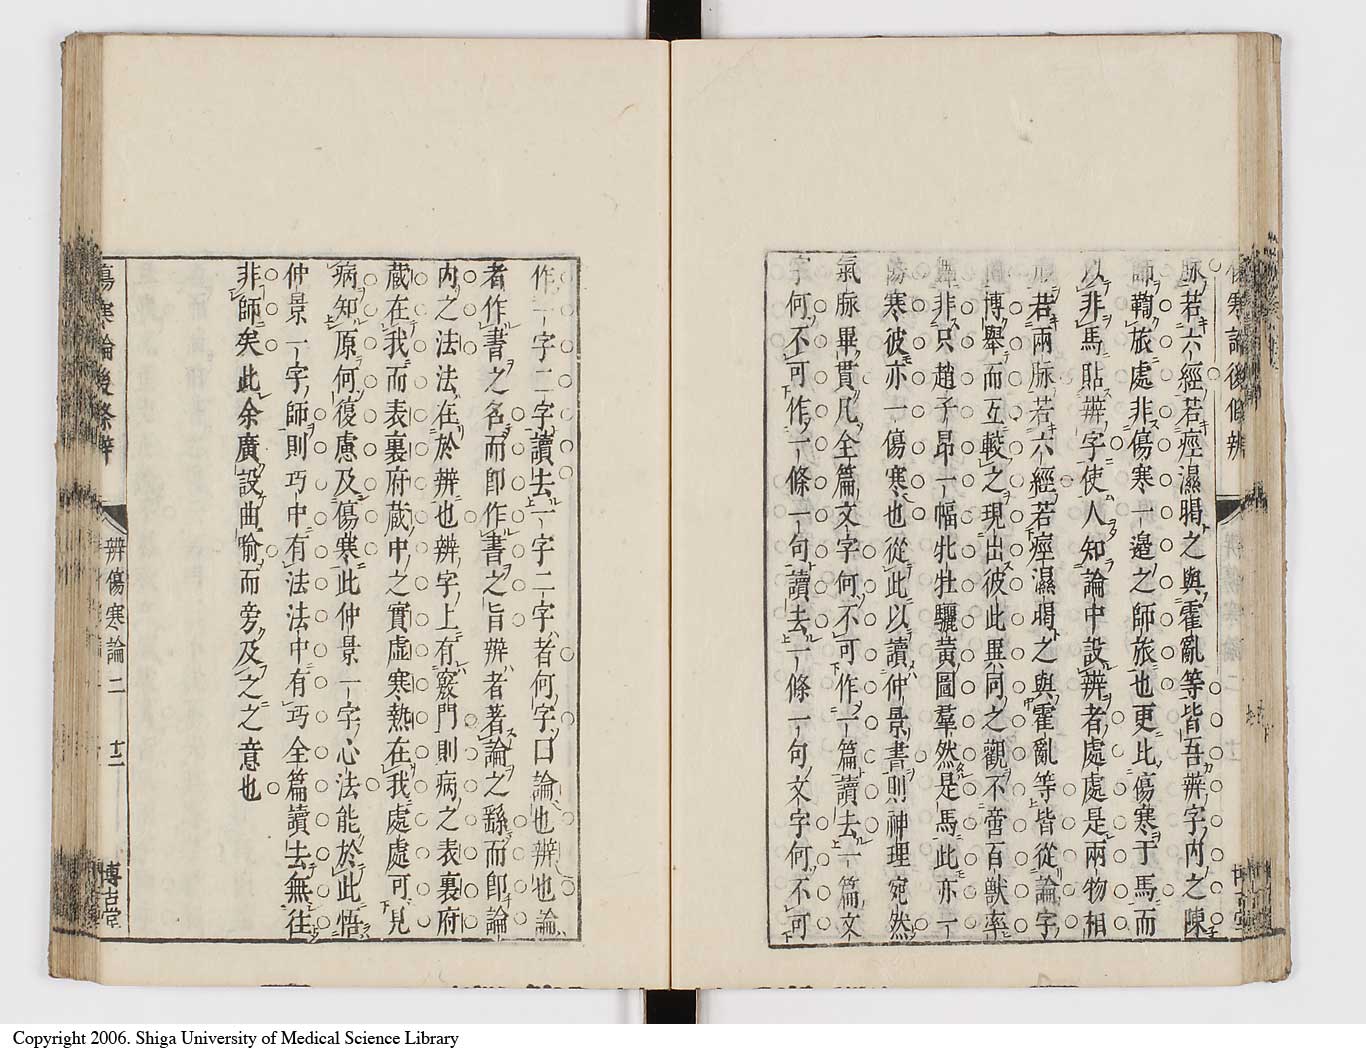 脉若六經若痙濕暍之與霍亂等皆吾辨字内之陳
師鞫旅處非傷寒一邉之師旅也更比傷寒于馬而
以非馬貼辨字使人知論中設辨者處處是兩物相
形若兩脉若六經若痙濕暍之與霍亂等皆從論字
博舉而互較之現出彼此異同之觀不啻百獸率
舞非只趙子昂一幅牝牡驪黄圖羣然是馬此亦一
傷寒彼亦一傷寒也從此以讀仲景書則神理宛然
氣脉畢貫凡全篇文字何不可作一篇讀去一篇文
字何不可作一條一句讀去一條一句文字何不可
作一字二字讀去一字二字者何字口論也辨也論
者作書之名而即作書之旨辨者著論之繇而即論
内之法法在於辨也辨字上有竅門則病之表裏府
藏在我而表裏府藏中之實虛寒熱在我處處可見
病知原何復慮及傷寒此仲景一字心法能於此悟
仲景一字師則巧中有法法中有巧全篇讀去無往
非師矣此余廣設曲喻而旁及之之意也
傷寒論後條辨
辨傷寒論二
十二
博古堂
Copyright 2006. Shiga University of Medical Science Library